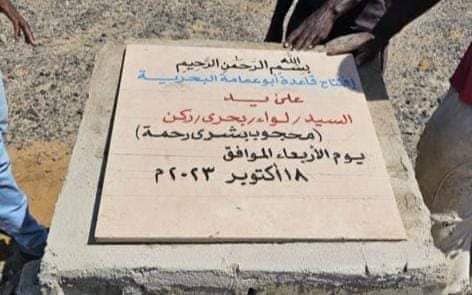 الله
بسم الرحمن الرحيم
إفتتاح قاعدة أبو عمامة البحرية
على يد
السيد/ لواء/ بحرى/ ركن
(محجوب بشرى رحمة)
يوم الأربعاء الموافق
١٨ أكتوبر ٢٠٢٣م